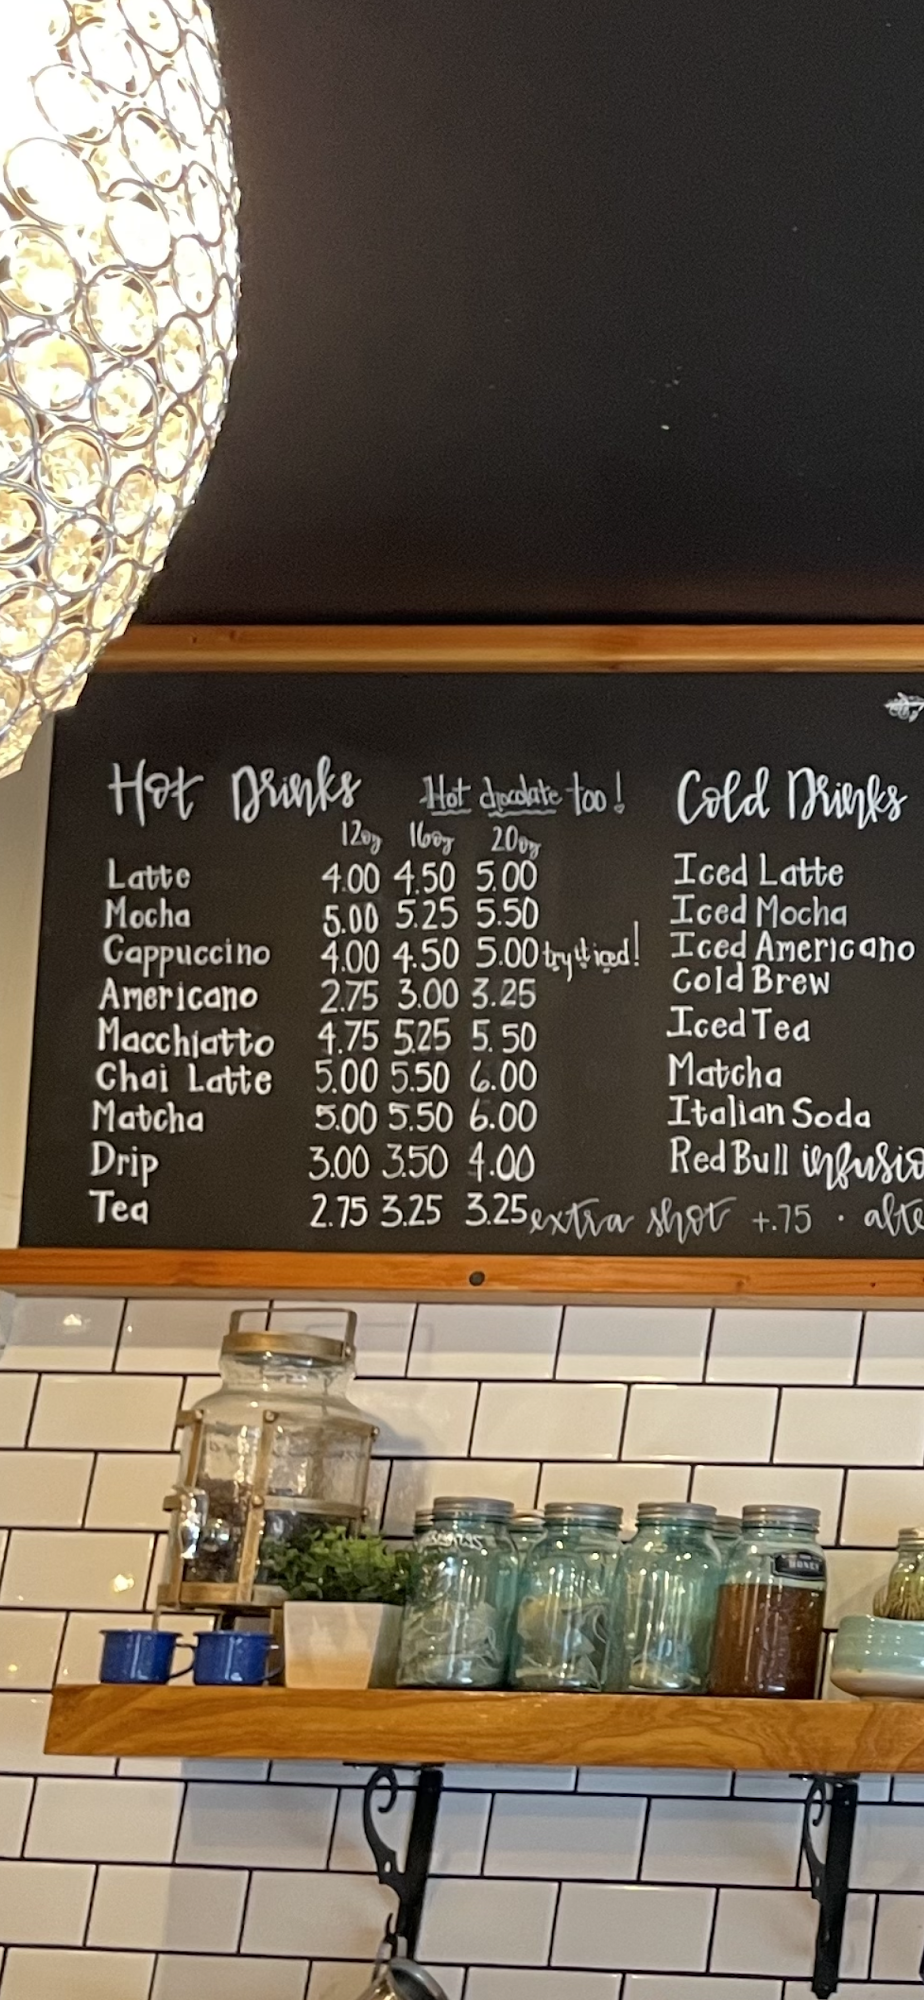 Hot Drinks
Hot chocolate too!
12oz 16oz 20oz
Latte 4.00 4.50 5.00
Mocha 5.00 5.25 5.50
Cappuccino 4.00 4.50 5.00 try it iced!
Americano 2.75 3.00 3.25
Macchiatto 4.75 5.25 5.50
Chai Latte 5.00 5.50 6.00
Matcha 5.00 5.50 6.00
Drip 3.00 3.50 4.00
Tea 2.75 3.25 3.25
Cold Drinks
Iced Latte
Iced Mocha
Iced Americano
Cold Brew
Iced Tea
Matcha
Italian Soda
Red Bull infusio
extra shot +.75 · alte
HONEY